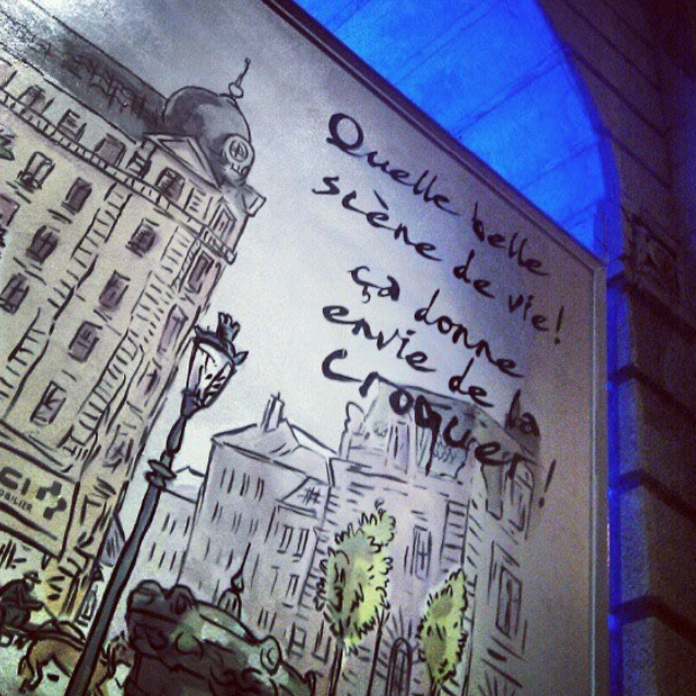 Quelle belle
scène de vie!
ça donne
envie de la
croquer!